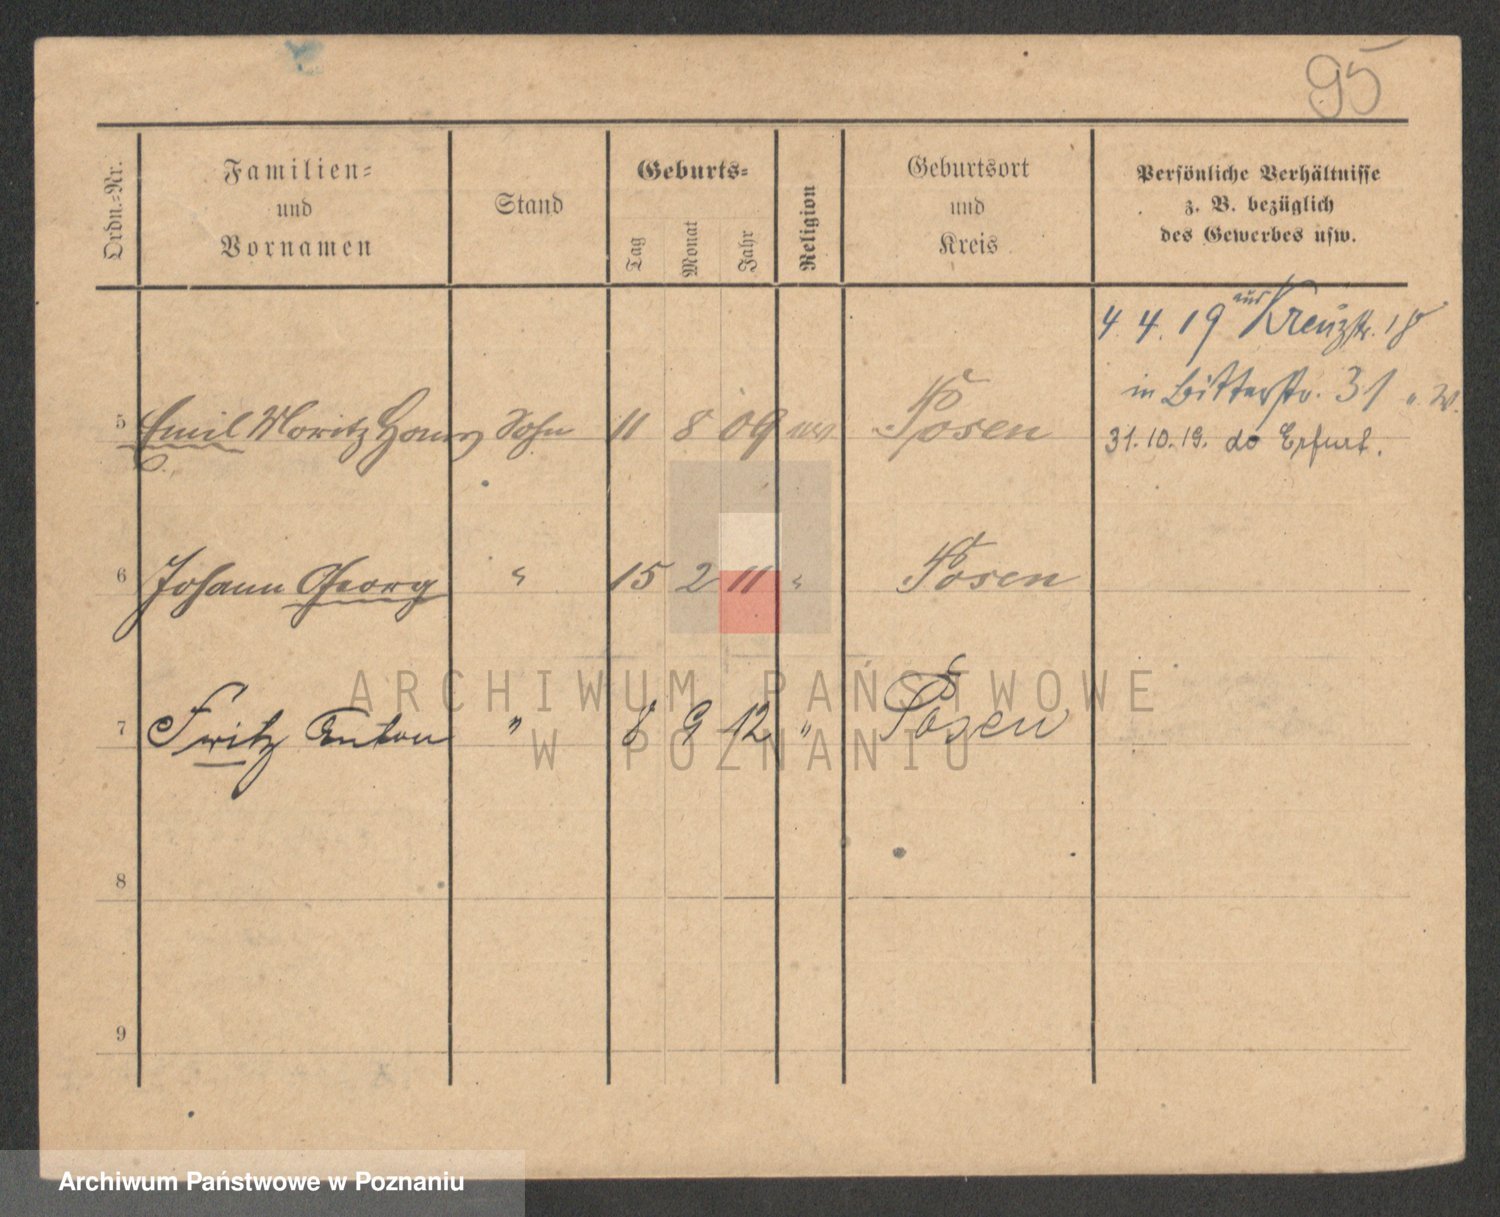 95
Ordn.-Nr.
Familien-
und
Vornamen
Stand
Geburts-
Tag
Monat
Jahr
Religion
Geburtsort
und
Kreis
Persönliche Verhältnisse
z. B. bezüglich
des Gewerbes usw.
4. 4. 19 aus Kreuzstr. 18
in Bitterstr. 31
31. 10. 19. do Erfurt.
5 Emil Moritz Sohn 11 8 09 Posen
6 Johann Georg " 15 2 11 " Posen
7 Fritz Anton " 8 9 12 " Posen
8
9
ARCHIWUM PAŃSTWOWE
W POZNANIU
Archiwum Państwowe w Poznaniu